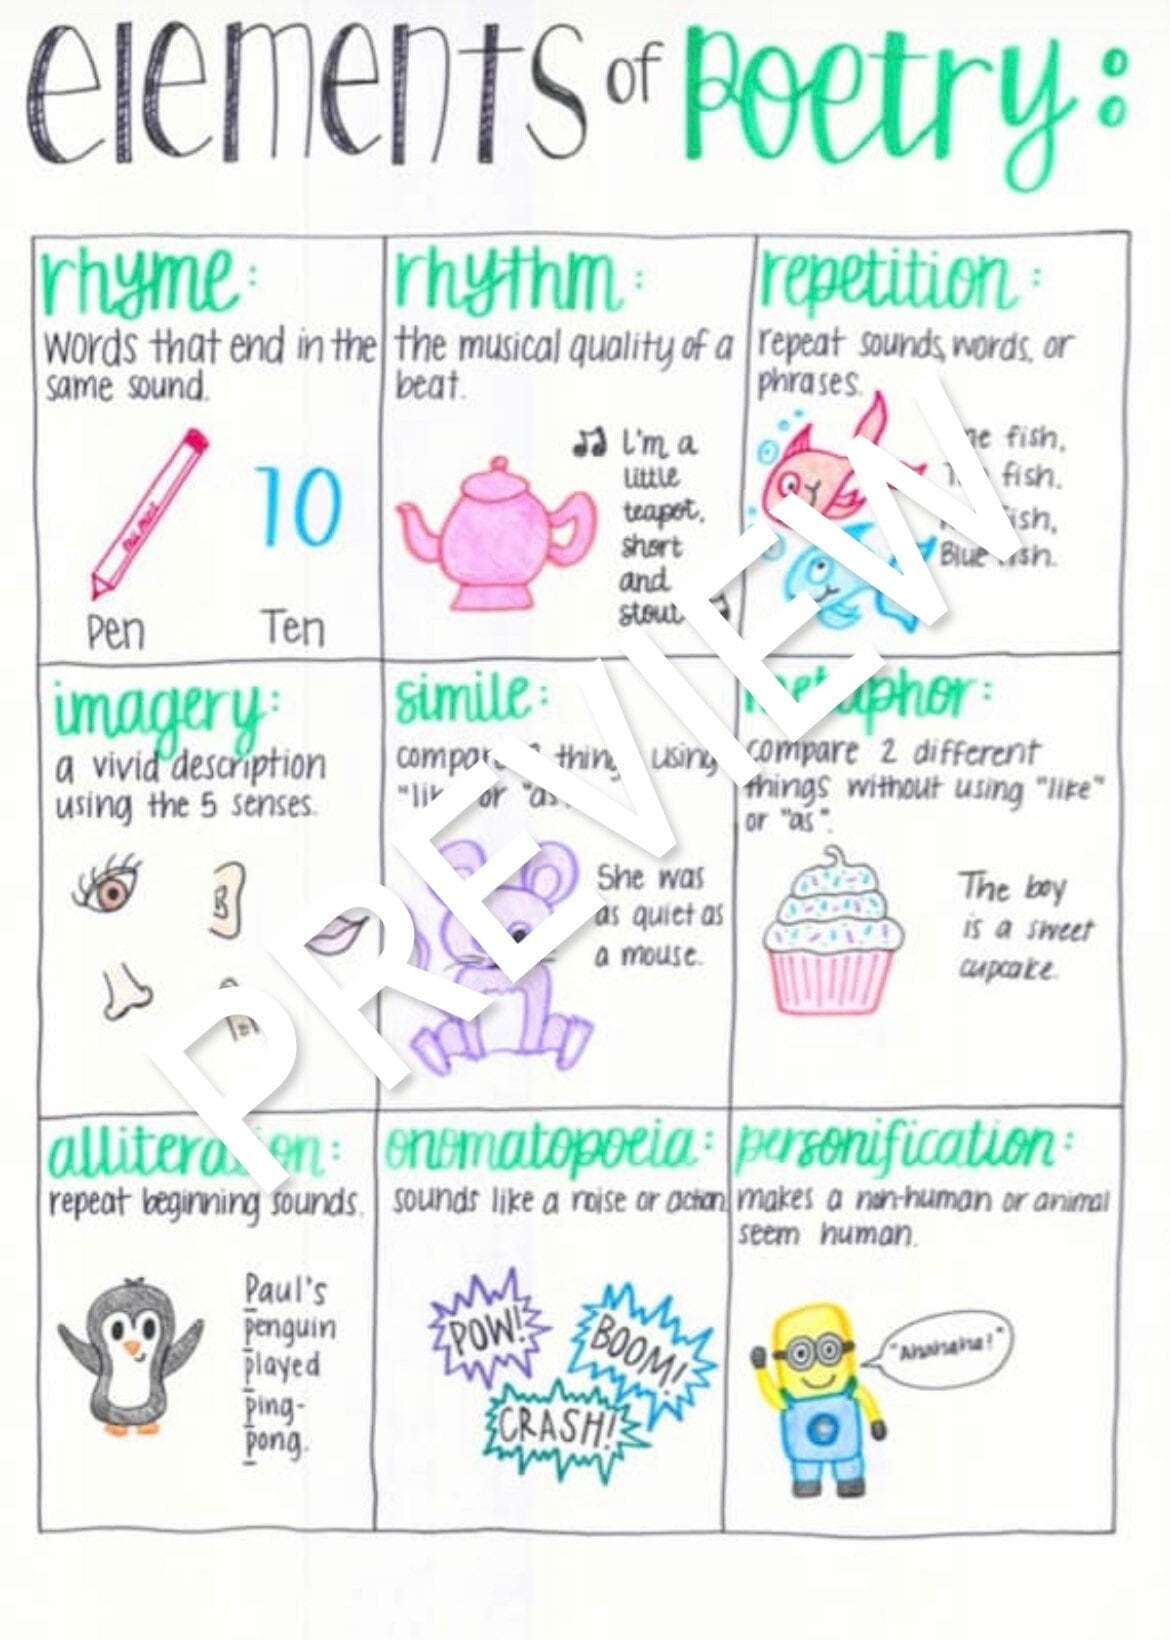 elements of Poetry:
rhyme:
words that end in the
same sound.
10
Pen
Ten
rhythm:
the musical quality of a
beat.
I'm a
little
teapot,
short
and
stout
repetition:
repeat sounds, words, or
phrases.
fish,
fish.
Blue fish.
imagery:
a vivid description
using the 5 senses.
simile:
compare 2 things using
"like" or "as".
She was
as quiet as
a mouse.
metaphor:
compare 2 different
things without using "like"
or "as".
The boy
is a sweet
cupcake.
alliteration:
repeat beginning sounds.
Paul's
penguin
played
ping-
pong.
onomatopoeia:
sounds like a noise or action.
POW!
BOOM!
CRASH!
personification:
makes a non-human or animal
seem human.
"Ahahaha!"
PREVIEW